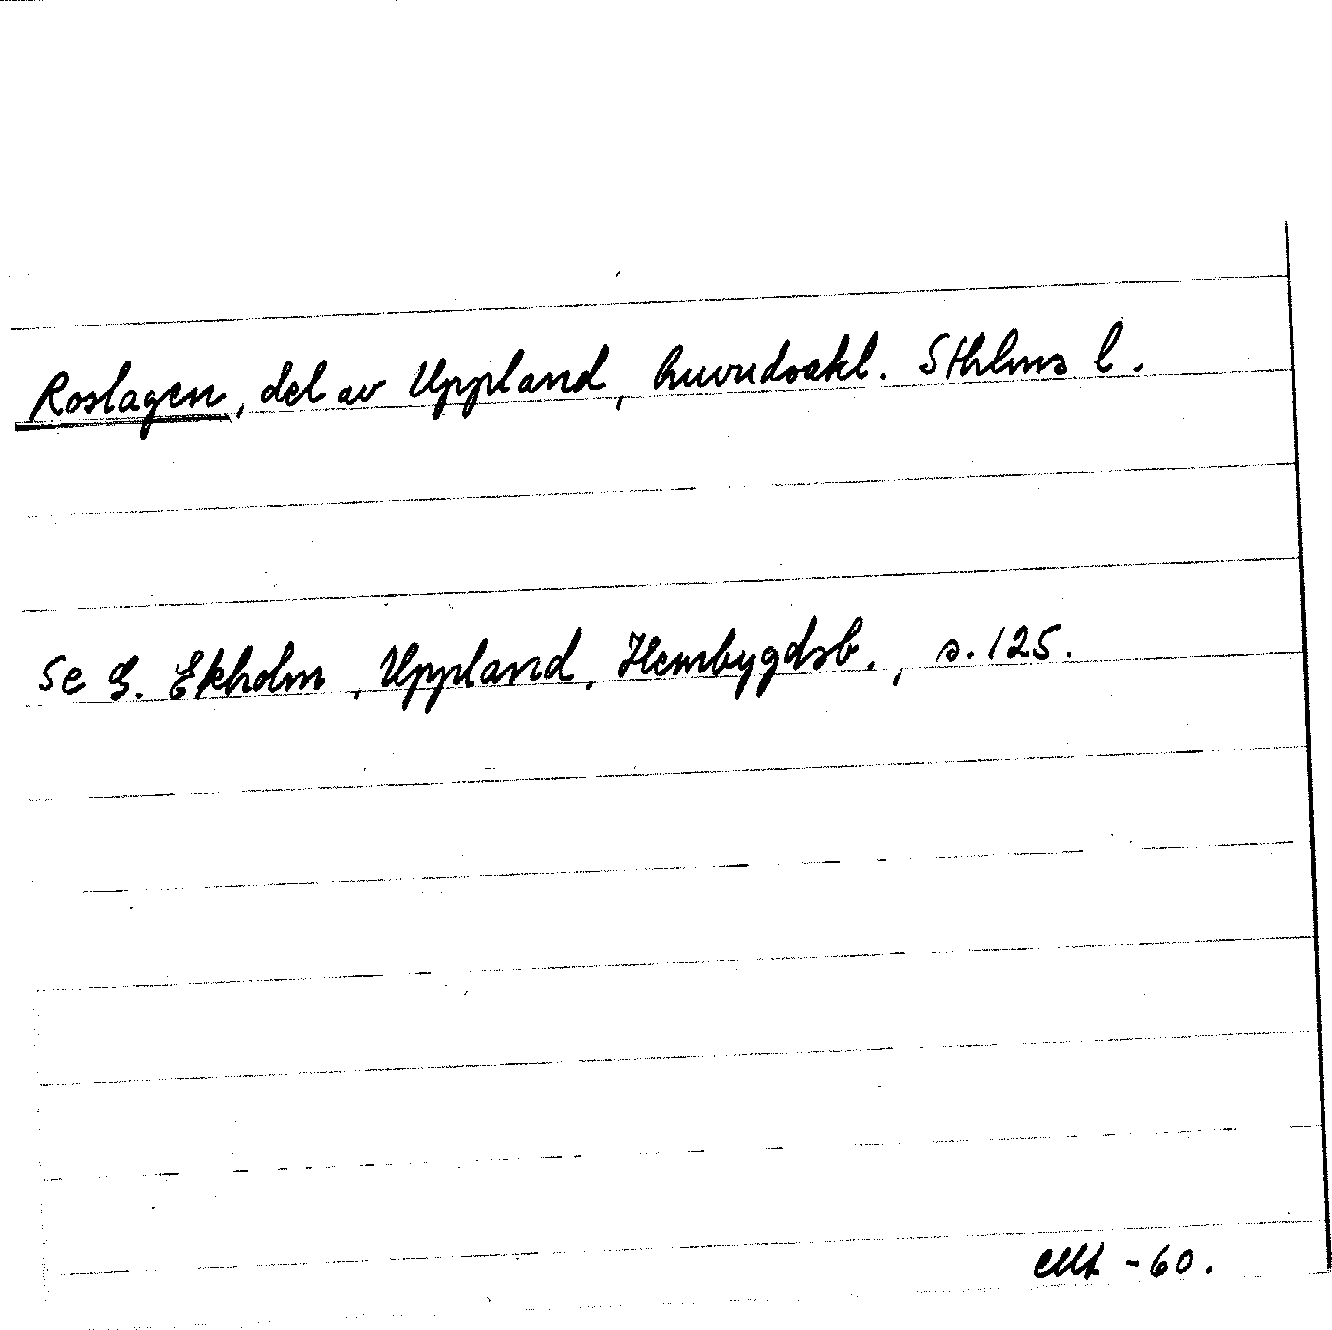 Roslagen, del av Uppland, huvudsakl. Sthlms l.
Se G. Ekholm, Uppland, Hembygdsb., s. 125.
-60.